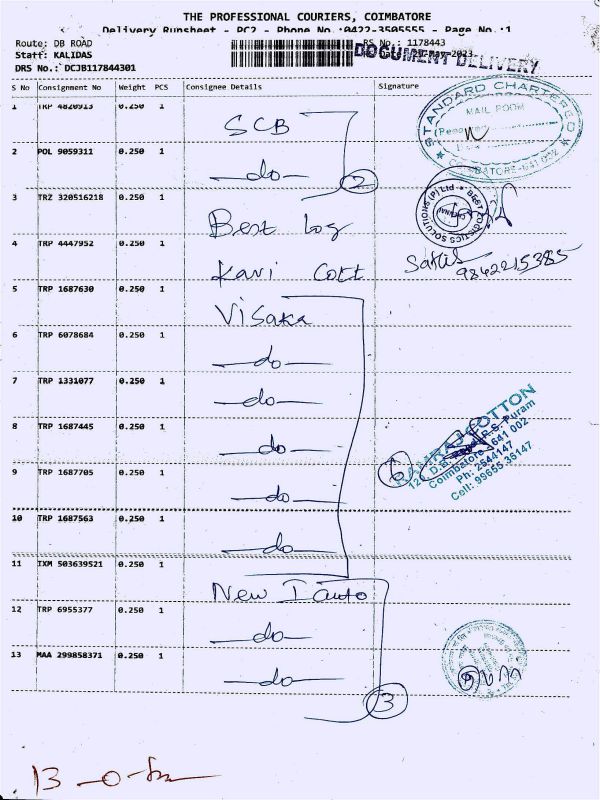 THE PROFESSIONAL COURIERS, COIMBATORE
Delivery Runsheet - PC2 - Phone No.:0422-3505555 - Page No.:1
Route: DB ROAD
RS No.: 1178443
Staff: KALIDAS
DOCUMENT DELIVERY
DRS No.: DCJB117844301
S No Consignment No Weight PCS Consignee Details Signature
1 TRP 4820913 0.250 1 SCB
2 POL 9059311 0.250 1 -do- 2
3 TRZ 320516218 0.250 1 Best Log
4 TRP 4447952 0.250 1 Kavi Cott
5 TRP 1687630 0.250 1 Visaka
6 TRP 6078684 0.250 1 -do-
7 TRP 1331077 0.250 1 -do-
8 TRP 1687445 0.250 1 -do-
9 TRP 1687705 0.250 1 -do-
10 TRP 1687563 0.250 1 -do-
11 IXM 503639521 0.250 1 New I auto
12 TRP 6955377 0.250 1 -do-
13 MAA 299858371 0.250 1 -do-
3
STANDARD CHARTERED
MAIL ROOM
COIMBATORE-641 002
BEST LOGISTICS SOLUTIONS (P) Ltd
CHENNAI
9842215385
6
RAMRAJ COTTON
R.S. Puram
Coimbatore - 641 002
Ph: 2544147
Cell: 99655 35147
13